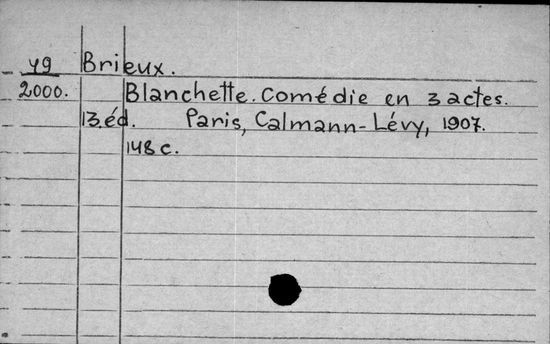 49 Brieux.
2000. Blanchette. Comédie en 3 actes.
13.éd. Paris, Calmann-Lévy, 1907.
148 c.